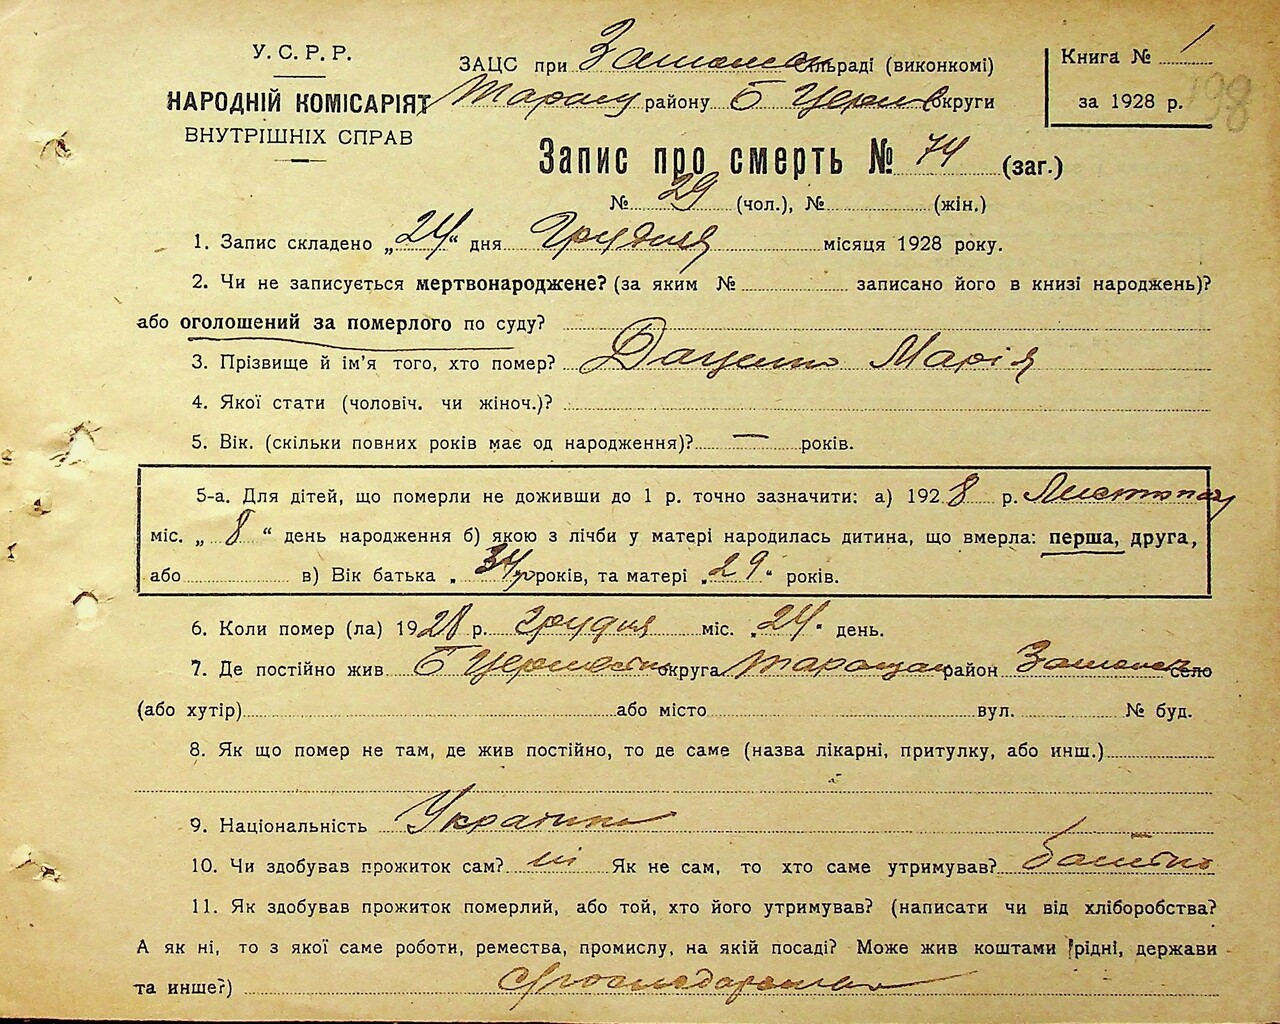 У. С. Р. Р.
НАРОДНІЙ КОМІСАРІЯТ
ВНУТРІШНІХ СПРАВ
ЗАЦС при сільраді (виконкомі)
Таращ району Б Церків округи
Книга № 1
за 1928 р. 198
Запис про смерть № 74 (заг.)
№ 29 (чол.), № (жін.)
1. Запис складено „24“ дня Грудня місяця 1928 року.
2. Чи не записується мертвонароджене? (за яким № записано його в книзі народжень)?
або оголошений за померлого по суду?
3. Прізвище й ім'я того, хто помер? Марія
4. Якої стати (чоловіч. чи жіноч.)?
5. Вік. (скільки повних років має од народження)? — років.
5-а. Для дітей, що померли не доживши до 1 р. точно зазначити: а) 1928 р. Листопад
міс. „8“ день народження б) якою з лічби у матері народилась дитина, що вмерла: перша, друга,
або в) Вік батька „34„ років, та матері „29“ років.
6. Коли помер (ла) 1928 р. грудня міс. „24“ день.
7. Де постійно жив округа район село
(або хутір) або місто вул. № буд.
8. Як що помер не там, де жив постійно, то де саме (назва лікарні, притулку, або инш.)
9. Національність Українка
10. Чи здобував прожиток сам? ні Як не сам, то хто саме утримував? батько
11. Як здобував прожиток померлий, або той, хто його утримував? (написати чи від хліборобства?
А як ні, то з якої саме роботи, ремества, промислу, на якій посаді? Може жив коштами рідні, держави
та инше?)